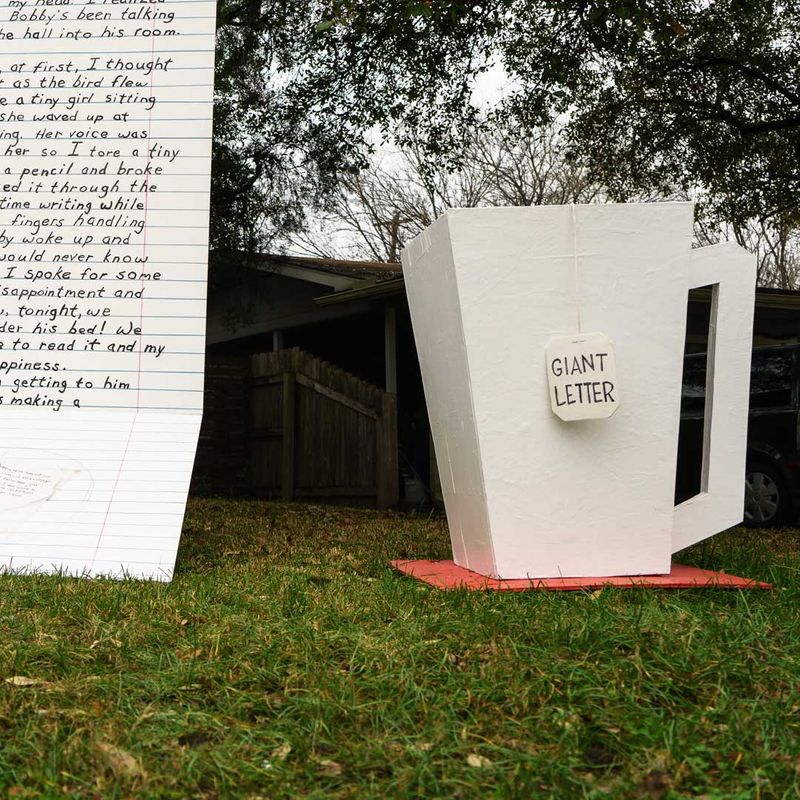 my head. I realized
Bobby's been talking
he hall into his room.
, at first, I thought
t as the bird flew
e a tiny girl sitting
she waved up at
ing. Her voice was
her so I tore a tiny
a pencil and broke
ed it through the
time writing while
fingers handling
by woke up and
would never know
I spoke for some
isappointment and
, tonight, we
der his bed! We
e to read it and my
ppiness.
getting to him
s making a
GIANT
LETTER